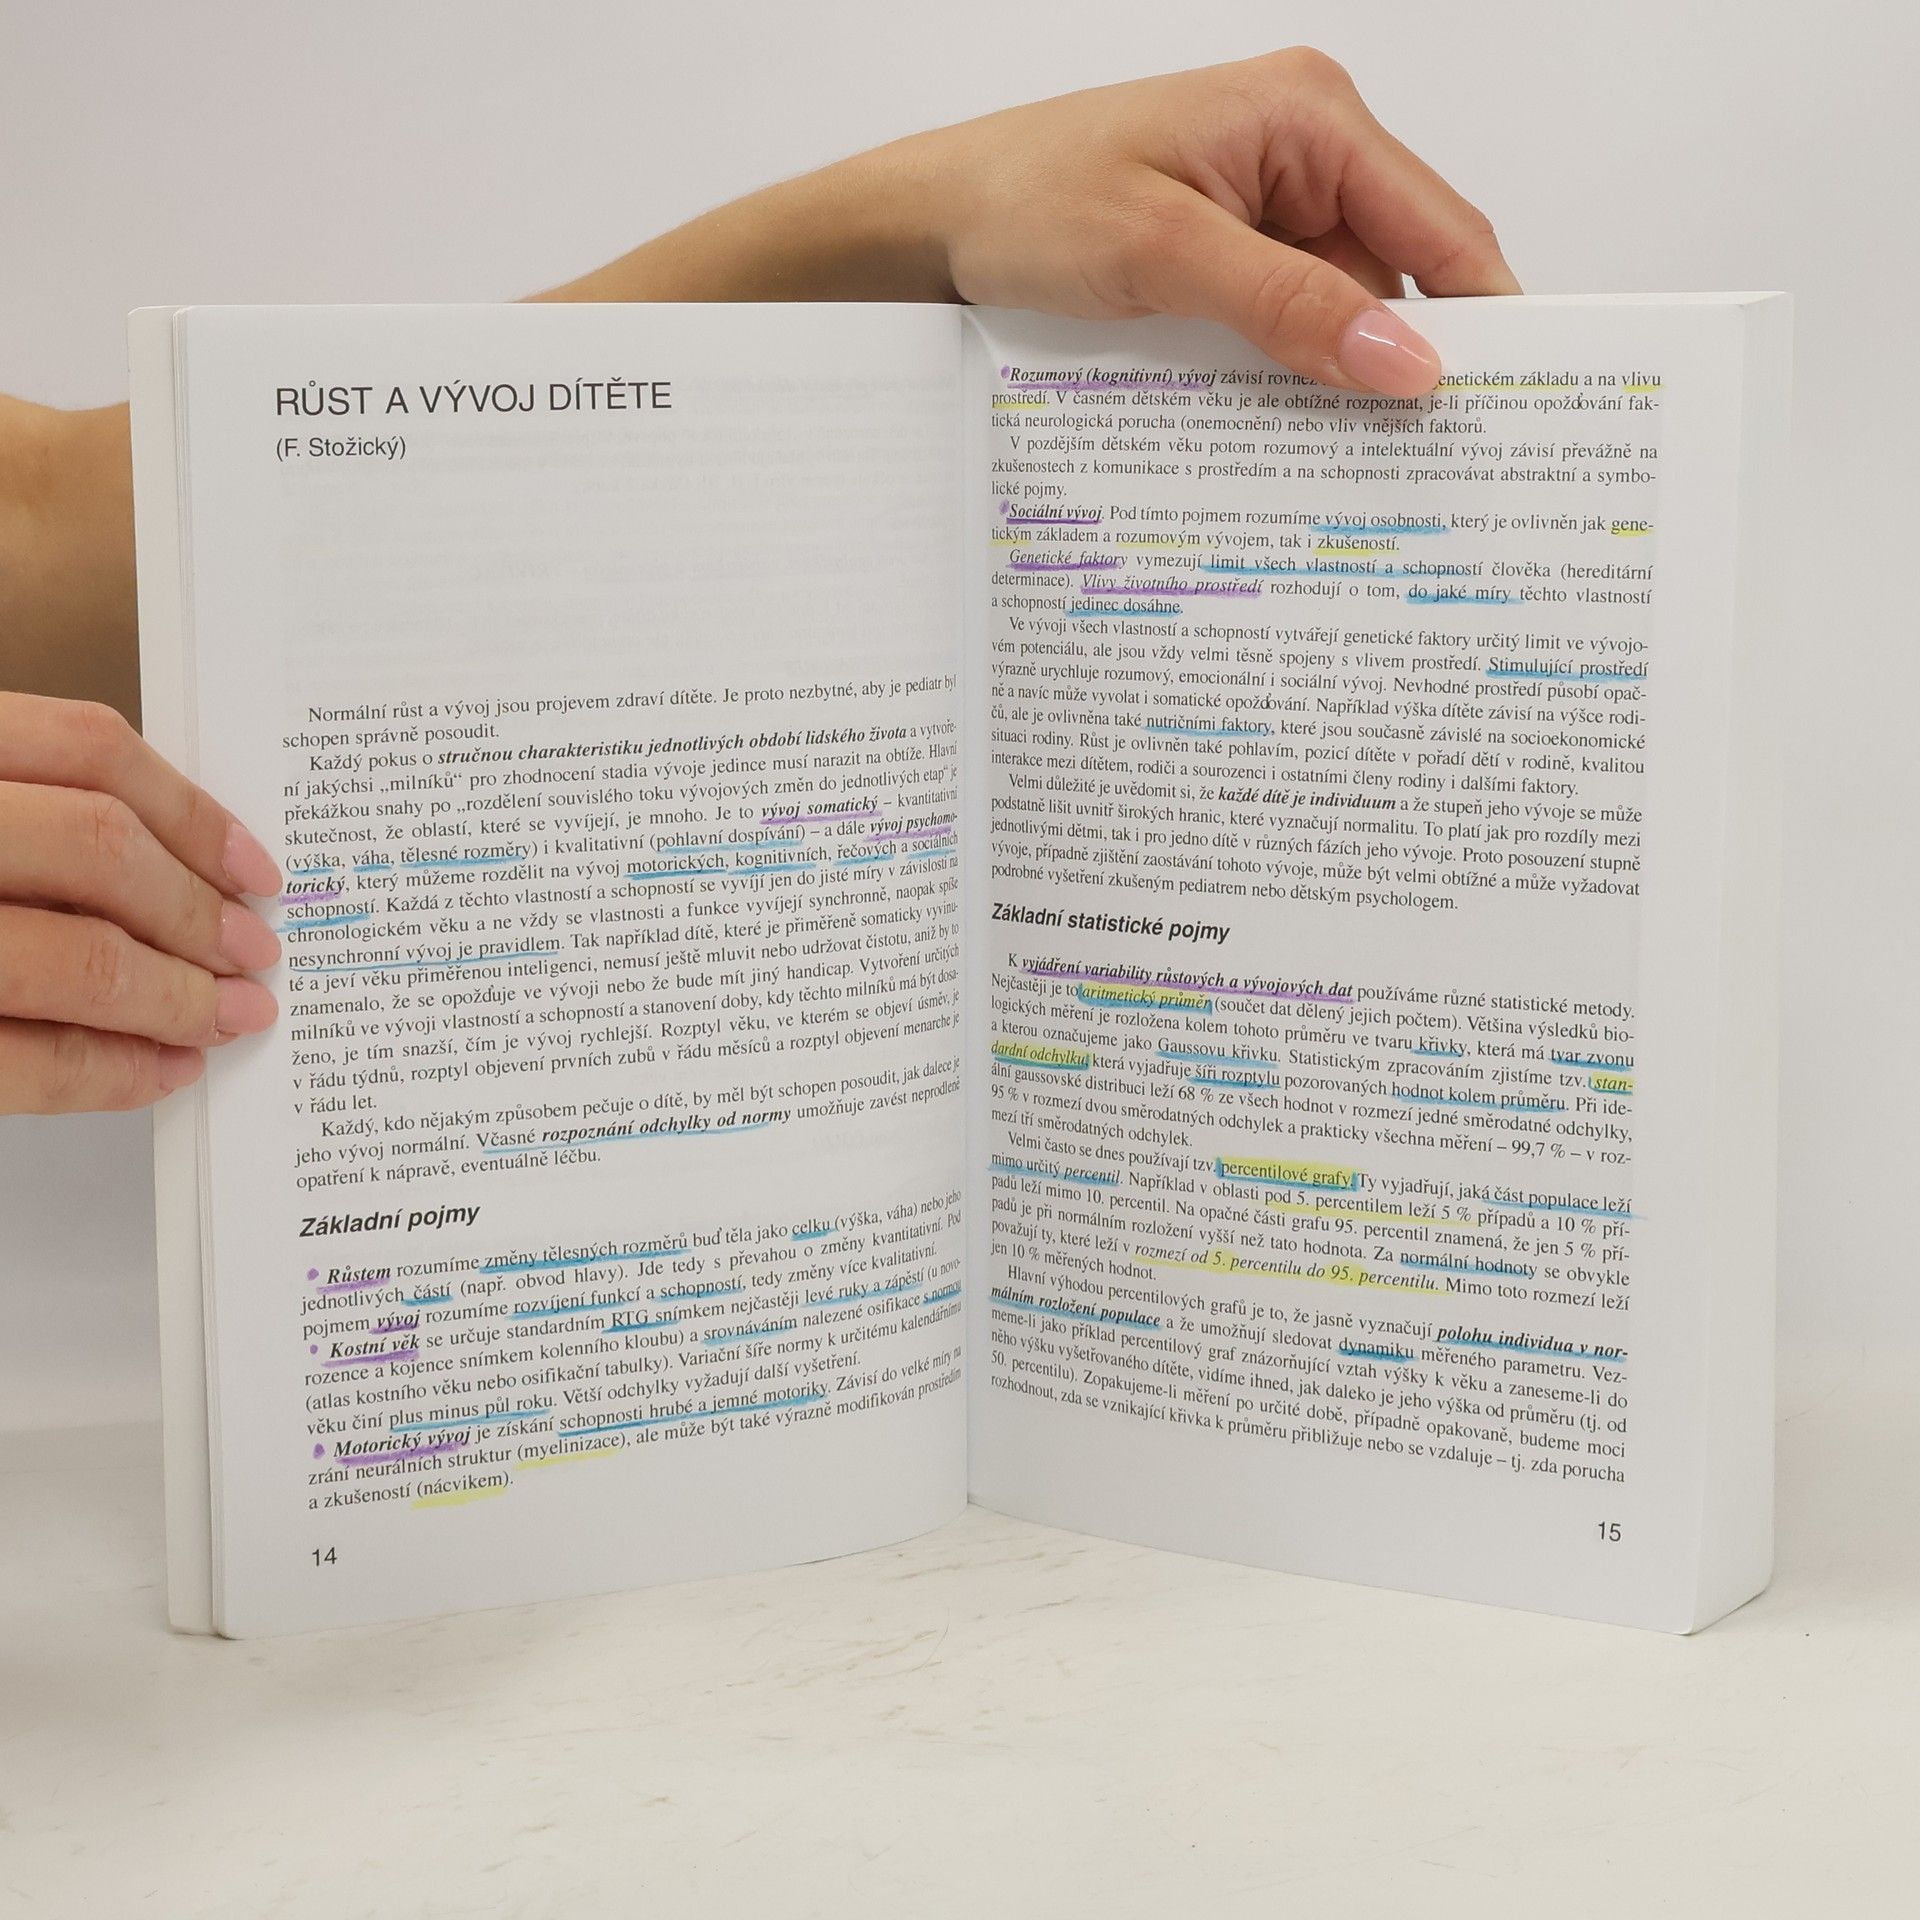 RŮST A VÝVOJ DÍTĚTE
(F. Stožický)
Normální růst a vývoj jsou projevem zdraví dítěte. Je proto nezbytné, aby je pediatr byl
schopen správně posoudit.
Každý pokus o stručnou charakteristiku jednotlivých období lidského života a vytvoře-
ní jakýchsi „milníků“ pro zhodnocení stadia vývoje jedince musí narazit na obtíže. Hlavní
překážkou snahy po „rozdělení souvislého toku vývojových změn do jednotlivých etap“ je
skutečnost, že oblastí, které se vyvíjejí, je mnoho. Je to vývoj somatický – kvantitativní
(výška, váha, tělesné rozměry) i kvalitativní (pohlavní dospívání) – a dále vývoj psychomo-
torický, který můžeme rozdělit na vývoj motorických, kognitivních, řečových a sociálních
schopností. Každá z těchto vlastností a schopností se vyvíjí jen do jisté míry v závislosti na
chronologickém věku a ne vždy se vlastnosti a funkce vyvíjejí synchronně, naopak spíše
nesynchronní vývoj je pravidlem. Tak například dítě, které je přiměřeně somaticky vyvinu-
té a jeví věku přiměřenou inteligenci, nemusí ještě mluvit nebo udržovat čistotu, aniž by to
znamenalo, že se opožďuje ve vývoji nebo že bude mít jiný handicap. Vytvoření určitých
milníků ve vývoji vlastností a schopností a stanovení doby, kdy těchto milníků má být dosa-
ženo, je tím snazší, čím je vývoj rychlejší. Rozptyl věku, ve kterém se objeví úsměv, je
v řádu týdnů, rozptyl objevení prvních zubů v řádu měsíců a rozptyl objevení menarche je
v řádu let.
Každý, kdo nějakým způsobem pečuje o dítě, by měl být schopen posoudit, jak dalece je
jeho vývoj normální. Včasné rozpoznání odchylky od normy umožňuje zavést neprodleně
opatření k nápravě, eventuálně léčbu.
Základní pojmy
• Růstem rozumíme změny tělesných rozměrů buď těla jako celku (výška, váha) nebo jeho
jednotlivých částí (např. obvod hlavy). Jde tedy s převahou o změny kvantitativní. Pod
pojmem vývoj rozumíme rozvíjení funkcí a schopností, tedy změny více kvalitativní.
• Kostní věk se určuje standardním RTG snímkem nejčastěji levé ruky a zápěstí (u novo-
rozence a kojence snímkem kolenního kloubu) a srovnáváním nalezené osifikace s normou
(atlas kostního věku nebo osifikační tabulky). Variační šíře normy k určitému kalendářnímu
věku činí plus minus půl roku. Větší odchylky vyžadují další vyšetření.
• Motorický vývoj je získání schopnosti hrubé a jemné motoriky. Závisí do velké míry na
zrání neurálních struktur (myelinizace), ale může být také výrazně modifikován prostředím
a zkušeností (nácvikem).
14
• Rozumový (kognitivní) vývoj závisí rovněž enetickém základu a na vlivu
prostředí. V časném dětském věku je ale obtížné rozpoznat, je-li příčinou opožďování fak-
tická neurologická porucha (onemocnění) nebo vliv vnějších faktorů.
V pozdějším dětském věku potom rozumový a intelektuální vývoj závisí převážně na
zkušenostech z komunikace s prostředím a na schopnosti zpracovávat abstraktní a symbo-
lické pojmy.
• Sociální vývoj. Pod tímto pojmem rozumíme vývoj osobnosti, který je ovlivněn jak gene-
tickým základem a rozumovým vývojem, tak i zkušeností.
Genetické faktory vymezují limit všech vlastností a schopností člověka (hereditární
determinace). Vlivy životního prostředí rozhodují o tom, do jaké míry těchto vlastností
a schopností jedinec dosáhne.
Ve vývoji všech vlastností a schopností vytvářejí genetické faktory určitý limit ve vývojo-
vém potenciálu, ale jsou vždy velmi těsně spojeny s vlivem prostředí. Stimulující prostředí
výrazně urychluje rozumový, emocionální i sociální vývoj. Nevhodné prostředí působí opač-
ně a navíc může vyvolat i somatické opožďování. Například výška dítěte závisí na výšce rodi-
čů, ale je ovlivněna také nutričními faktory, které jsou současně závislé na socioekonomické
situaci rodiny. Růst je ovlivněn také pohlavím, pozicí dítěte v pořadí dětí v rodině, kvalitou
interakce mezi dítětem, rodiči a sourozenci i ostatními členy rodiny i dalšími faktory.
Velmi důležité je uvědomit si, že každé dítě je individuum a že stupeň jeho vývoje se může
podstatně lišit uvnitř širokých hranic, které vyznačují normalitu. To platí jak pro rozdíly mezi
jednotlivými dětmi, tak i pro jedno dítě v různých fázích jeho vývoje. Proto posouzení stupně
vývoje, případně zjištění zaostávání tohoto vývoje, může být velmi obtížné a může vyžadovat
podrobné vyšetření zkušeným pediatrem nebo dětským psychologem.
Základní statistické pojmy
K vyjádření variability růstových a vývojových dat používáme různé statistické metody.
Nejčastěji je to aritmetický průměr (součet dat dělený jejich počtem). Většina výsledků bio-
logických měření je rozložena kolem tohoto průměru ve tvaru křivky, která má tvar zvonu
a kterou označujeme jako Gaussovu křivku. Statistickým zpracováním zjistíme tzv. stan-
dardní odchylku, která vyjadřuje šíři rozptylu pozorovaných hodnot kolem průměru. Při ide-
ální gaussovské distribuci leží 68 % ze všech hodnot v rozmezí jedné směrodatné odchylky,
95 % v rozmezí dvou směrodatných odchylek a prakticky všechna měření – 99,7 % – v roz-
mezí tří směrodatných odchylek.
Velmi často se dnes používají tzv. percentilové grafy. Ty vyjadřují, jaká část populace leží
mimo určitý percentil. Například v oblasti pod 5. percentilem leží 5 % případů a 10 % pří-
padů leží mimo 10. percentil. Na opačné části grafu 95. percentil znamená, že jen 5 % pří-
padů je při normálním rozložení vyšší než tato hodnota. Za normální hodnoty se obvykle
považují ty, které leží v rozmezí od 5. percentilu do 95. percentilu. Mimo toto rozmezí leží
jen 10 % měřených hodnot.
Hlavní výhodou percentilových grafů je to, že jasně vyznačují polohu individua v nor-
málním rozložení populace a že umožňují sledovat dynamiku měřeného parametru. Vez-
meme-li jako příklad percentilový graf znázorňující vztah výšky k věku a zaneseme-li do
něho výšku vyšetřovaného dítěte, vidíme ihned, jak daleko je jeho výška od průměru (tj. od
50. percentilu). Zopakujeme-li měření po určité době, případně opakovaně, budeme moci
rozhodnout, zda se vznikající křivka k průměru přibližuje nebo se vzdaluje – tj. zda porucha
15